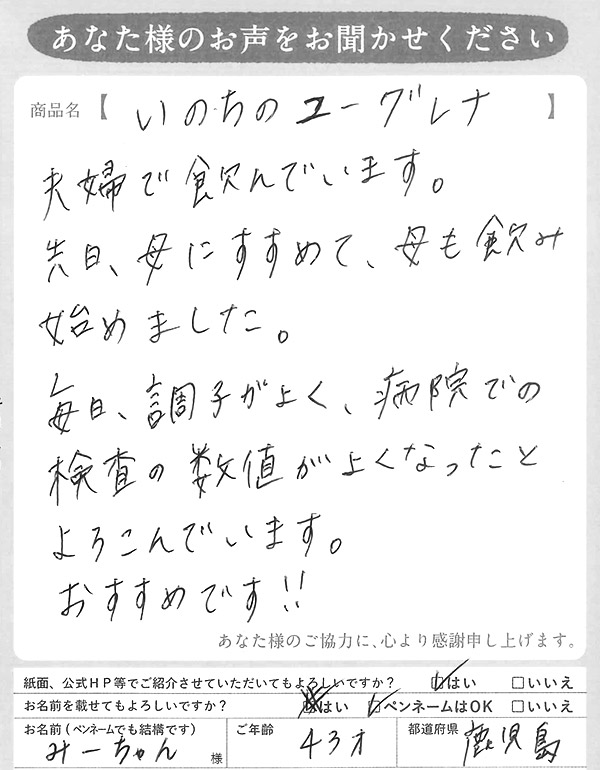 あなた様のお声をお聞かせください
商品名【 いのちのユーグレナ 】
夫婦で飲んでいます。
先日、母にすすめて、母も飲み
始めました。
毎日、調子がよく、病院での
検査の数値がよくなったと
よろこんでいます。
おすすめです!!
あなた様のご協力に、心より感謝申し上げます。
紙面、公式HP等でご紹介させていただいてもよろしいですか? ☑はい □いいえ
お名前を載せてもよろしいですか? はい ☑ペンネームはOK □いいえ
お名前(ペンネームでも結構です) ご年齢 都道府県
みーちゃん 様 43才 鹿児島